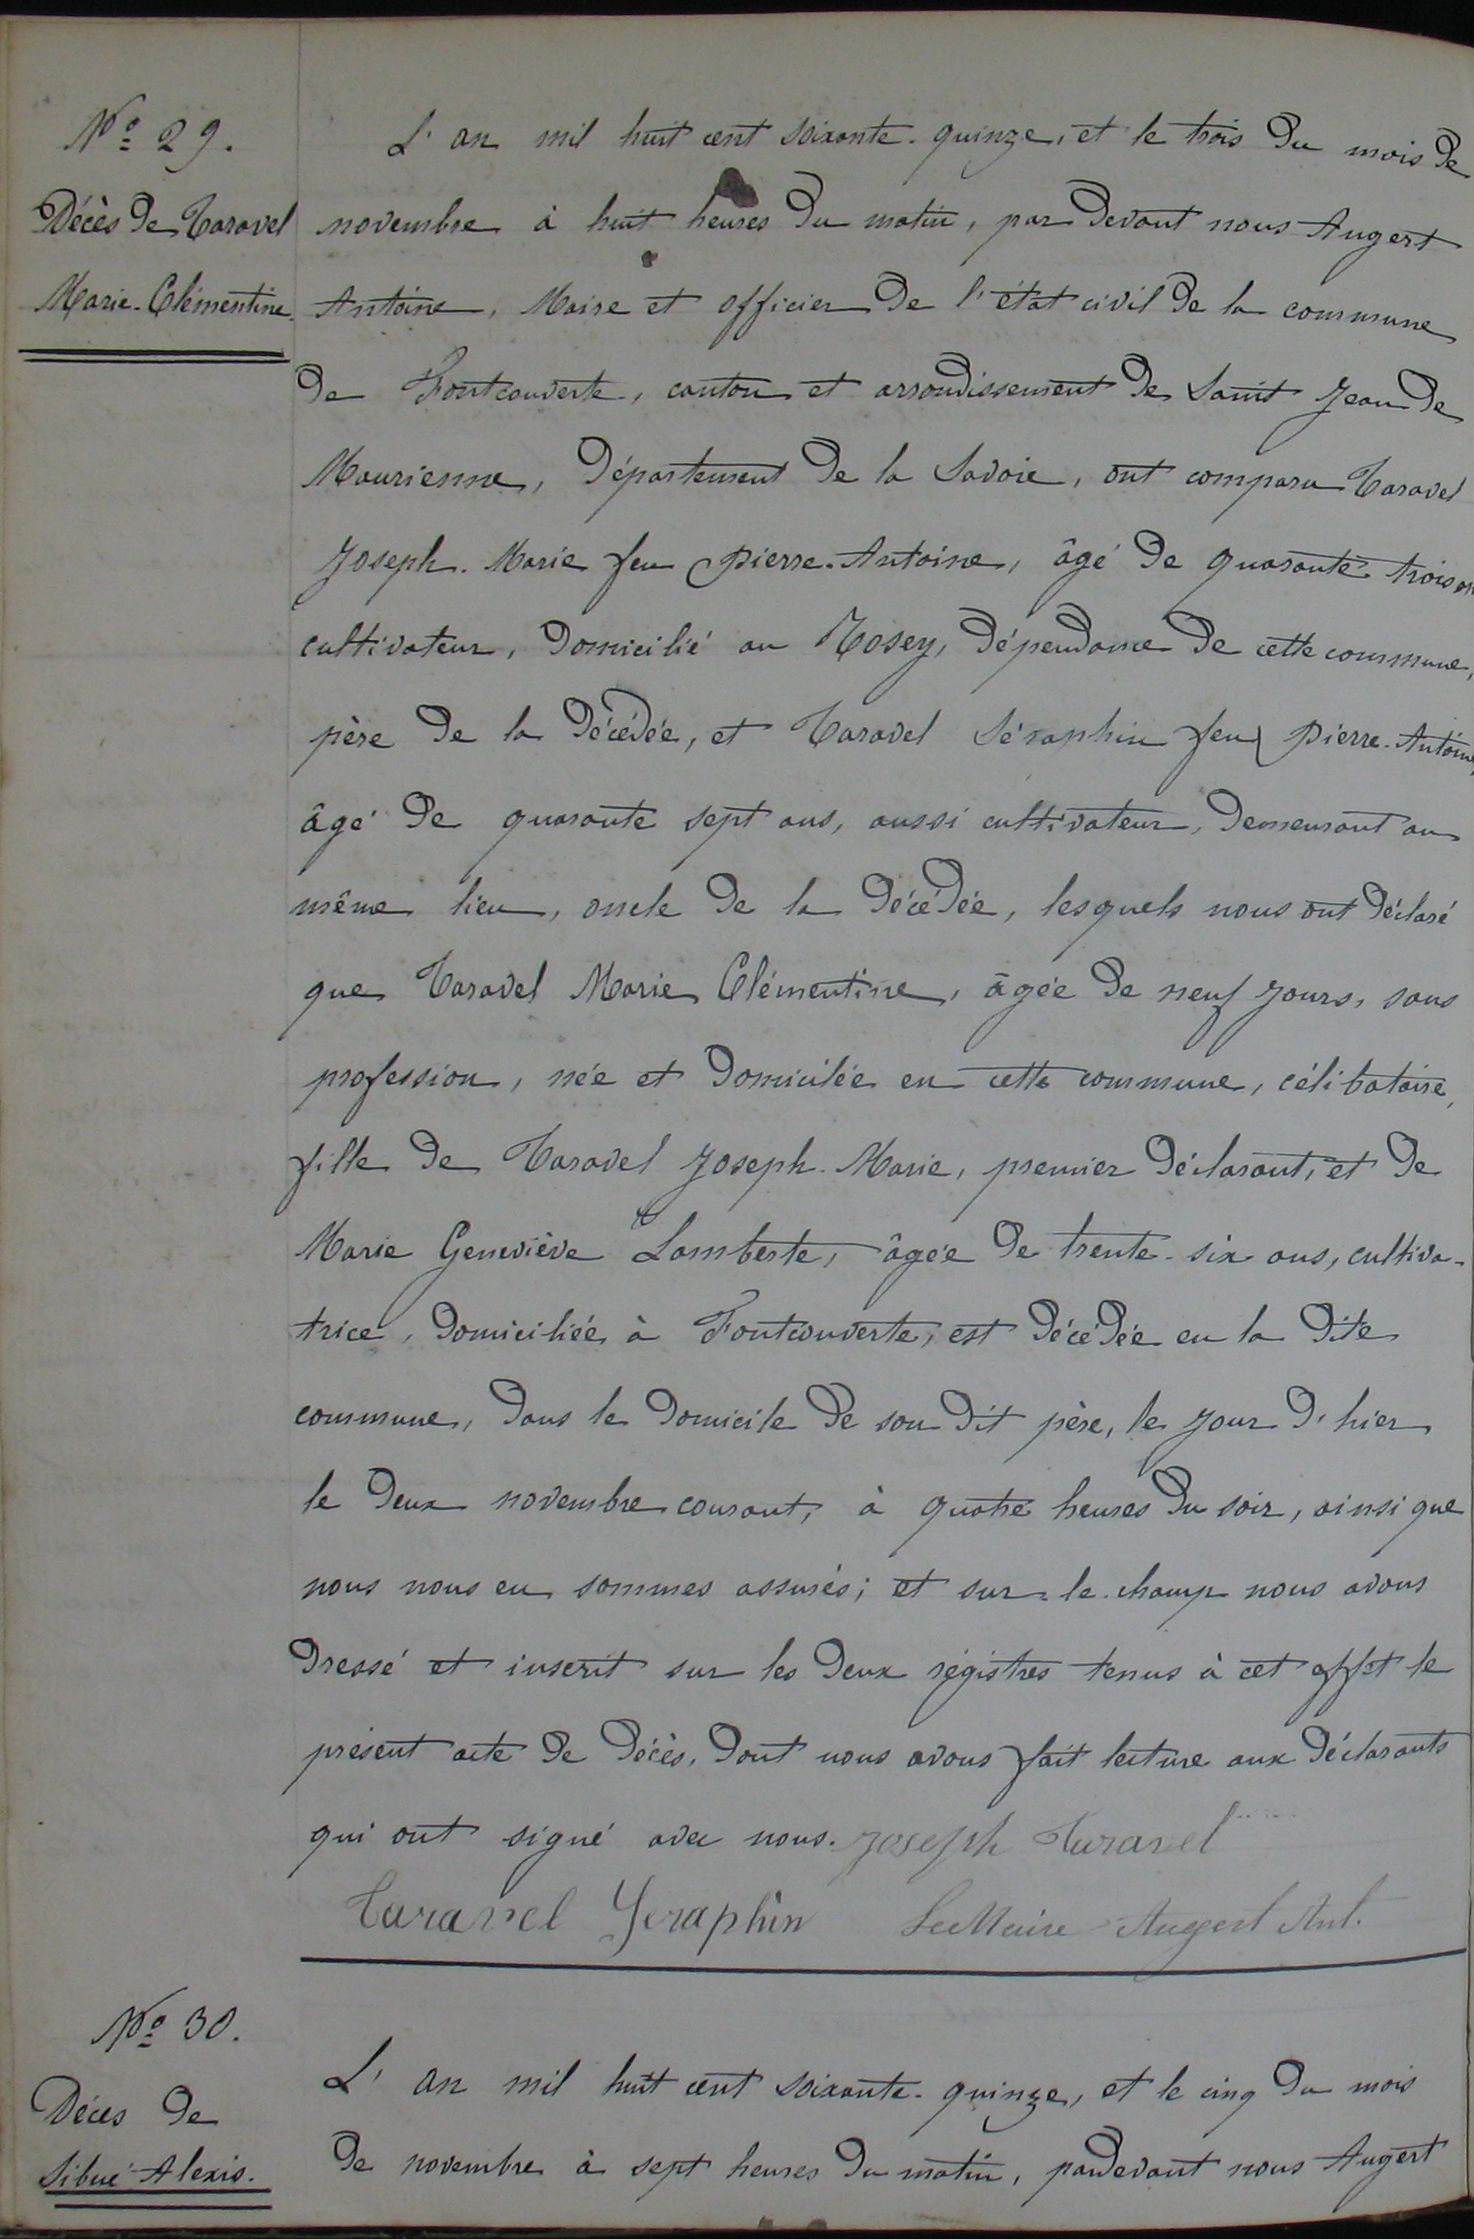 Nº 29.
Décès de Taravel
Marie-Clémentine.
L'an mil huit cent soixante-quinze, et le trois du mois de
novembre à huit heures du matin, par devant nous Augert
Antoine, Maire et officier de l'état civil de la commune
de Fontcouverte, canton et arrondissement de Saint Jean de
Maurienne, département de la Savoie, ont comparu Taravel
Joseph-Marie feu Pierre-Antoine, âgé de quarante-trois an
cultivateur, domicilié au Rosey, dépendance de cette commune,
père de la décédée, et Taravel Séraphin feu Pierre-Antoine,
âgé de quarante sept ans, aussi cultivateur, demeurant au
même lieu, oncle de la décédée, lesquels nous ont déclaré
que Taravel Marie Clémentine, âgée de neuf jours, sans
profession, née et domiciliée en cette commune, célibataire,
fille de Taravel Joseph-Marie, premier déclarant, et de
Marie Geneviève Lamberte, âgée de trente-six ans, cultiva-
trice, domiciliée à Fontcouverte, est décédée en la dite
commune, dans le domicile de son dit père, le jour d'hier
le deux novembre courant, à quatre heures du soir, ainsi que
nous nous en sommes assurés; et sur-le-champ nous avons
dressé et inscrit sur les deux régistres tenus à cet effet le
présent acte de décès, dont nous avons fait lecture aux déclarants
qui ont signé avec nous. Joseph Taravel
Taravel Seraphin Le Maire Augert Ant.
Nº 30.
Décès de
Sibué Alexis.
L'an mil huit cent soixante-quinze, et le cinq du mois
de novembre à sept heures du matin, pardevant nous Augert